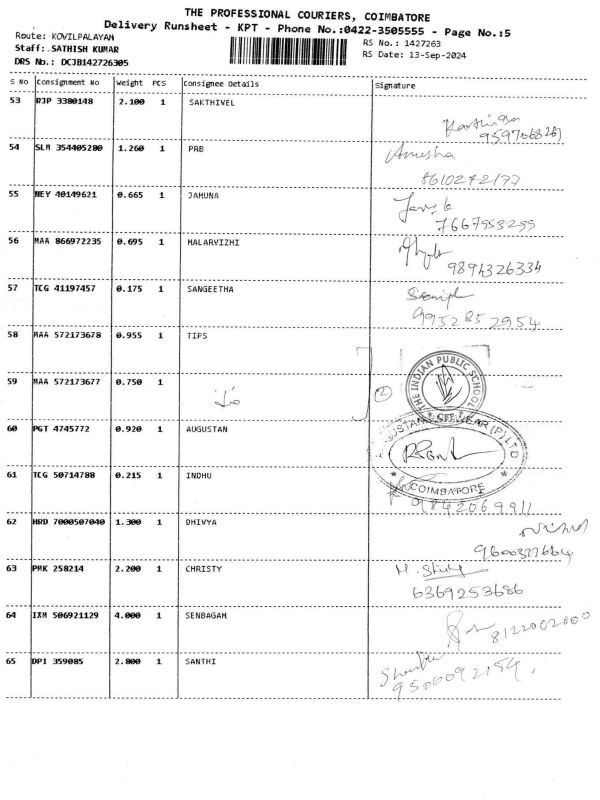 THE PROFESSIONAL COURIERS, COIMBATORE
Delivery Runsheet - KPT - Phone No.:0422-3505555 - Page No.:5
Route: KOVILPALAYAM
Staff: SATHISH KUMAR
DRS No.: DCJB142726305
RS No.: 1427263
RS Date: 13-Sep-2024
S No Consignment No Weight PCS Consignee Details Signature
53 RJP 3380148 2.100 1 SAKTHIVEL
9597068267
54 SLM 354405280 1.260 1 PRB Anusha
8610272177
55 NEY 40149621 0.665 1 JAMUNA
7667953299
56 MAA 866972235 0.695 1 MALARVIZHI
9894326334
57 TCG 41197457 0.175 1 SANGEETHA
9952852954
58 MAA 572173678 0.955 1 TIPS
THE INDIAN PUBLIC SCHOOL
59 MAA 572173677 0.750 1 2
60 PGT 4745772 0.920 1 AUGUSTAN
COIMBATORE
61 TCG 50714788 0.215 1 INDHU
9842069911
62 HRD 7000507040 1.300 1 DHIVYA
63 PMK 258214 2.200 1 CHRISTY
6369253686
64 IXM 506921129 4.000 1 SENBAGAM
8122002000
65 DPI 359085 2.800 1 SANTHI
9500092154